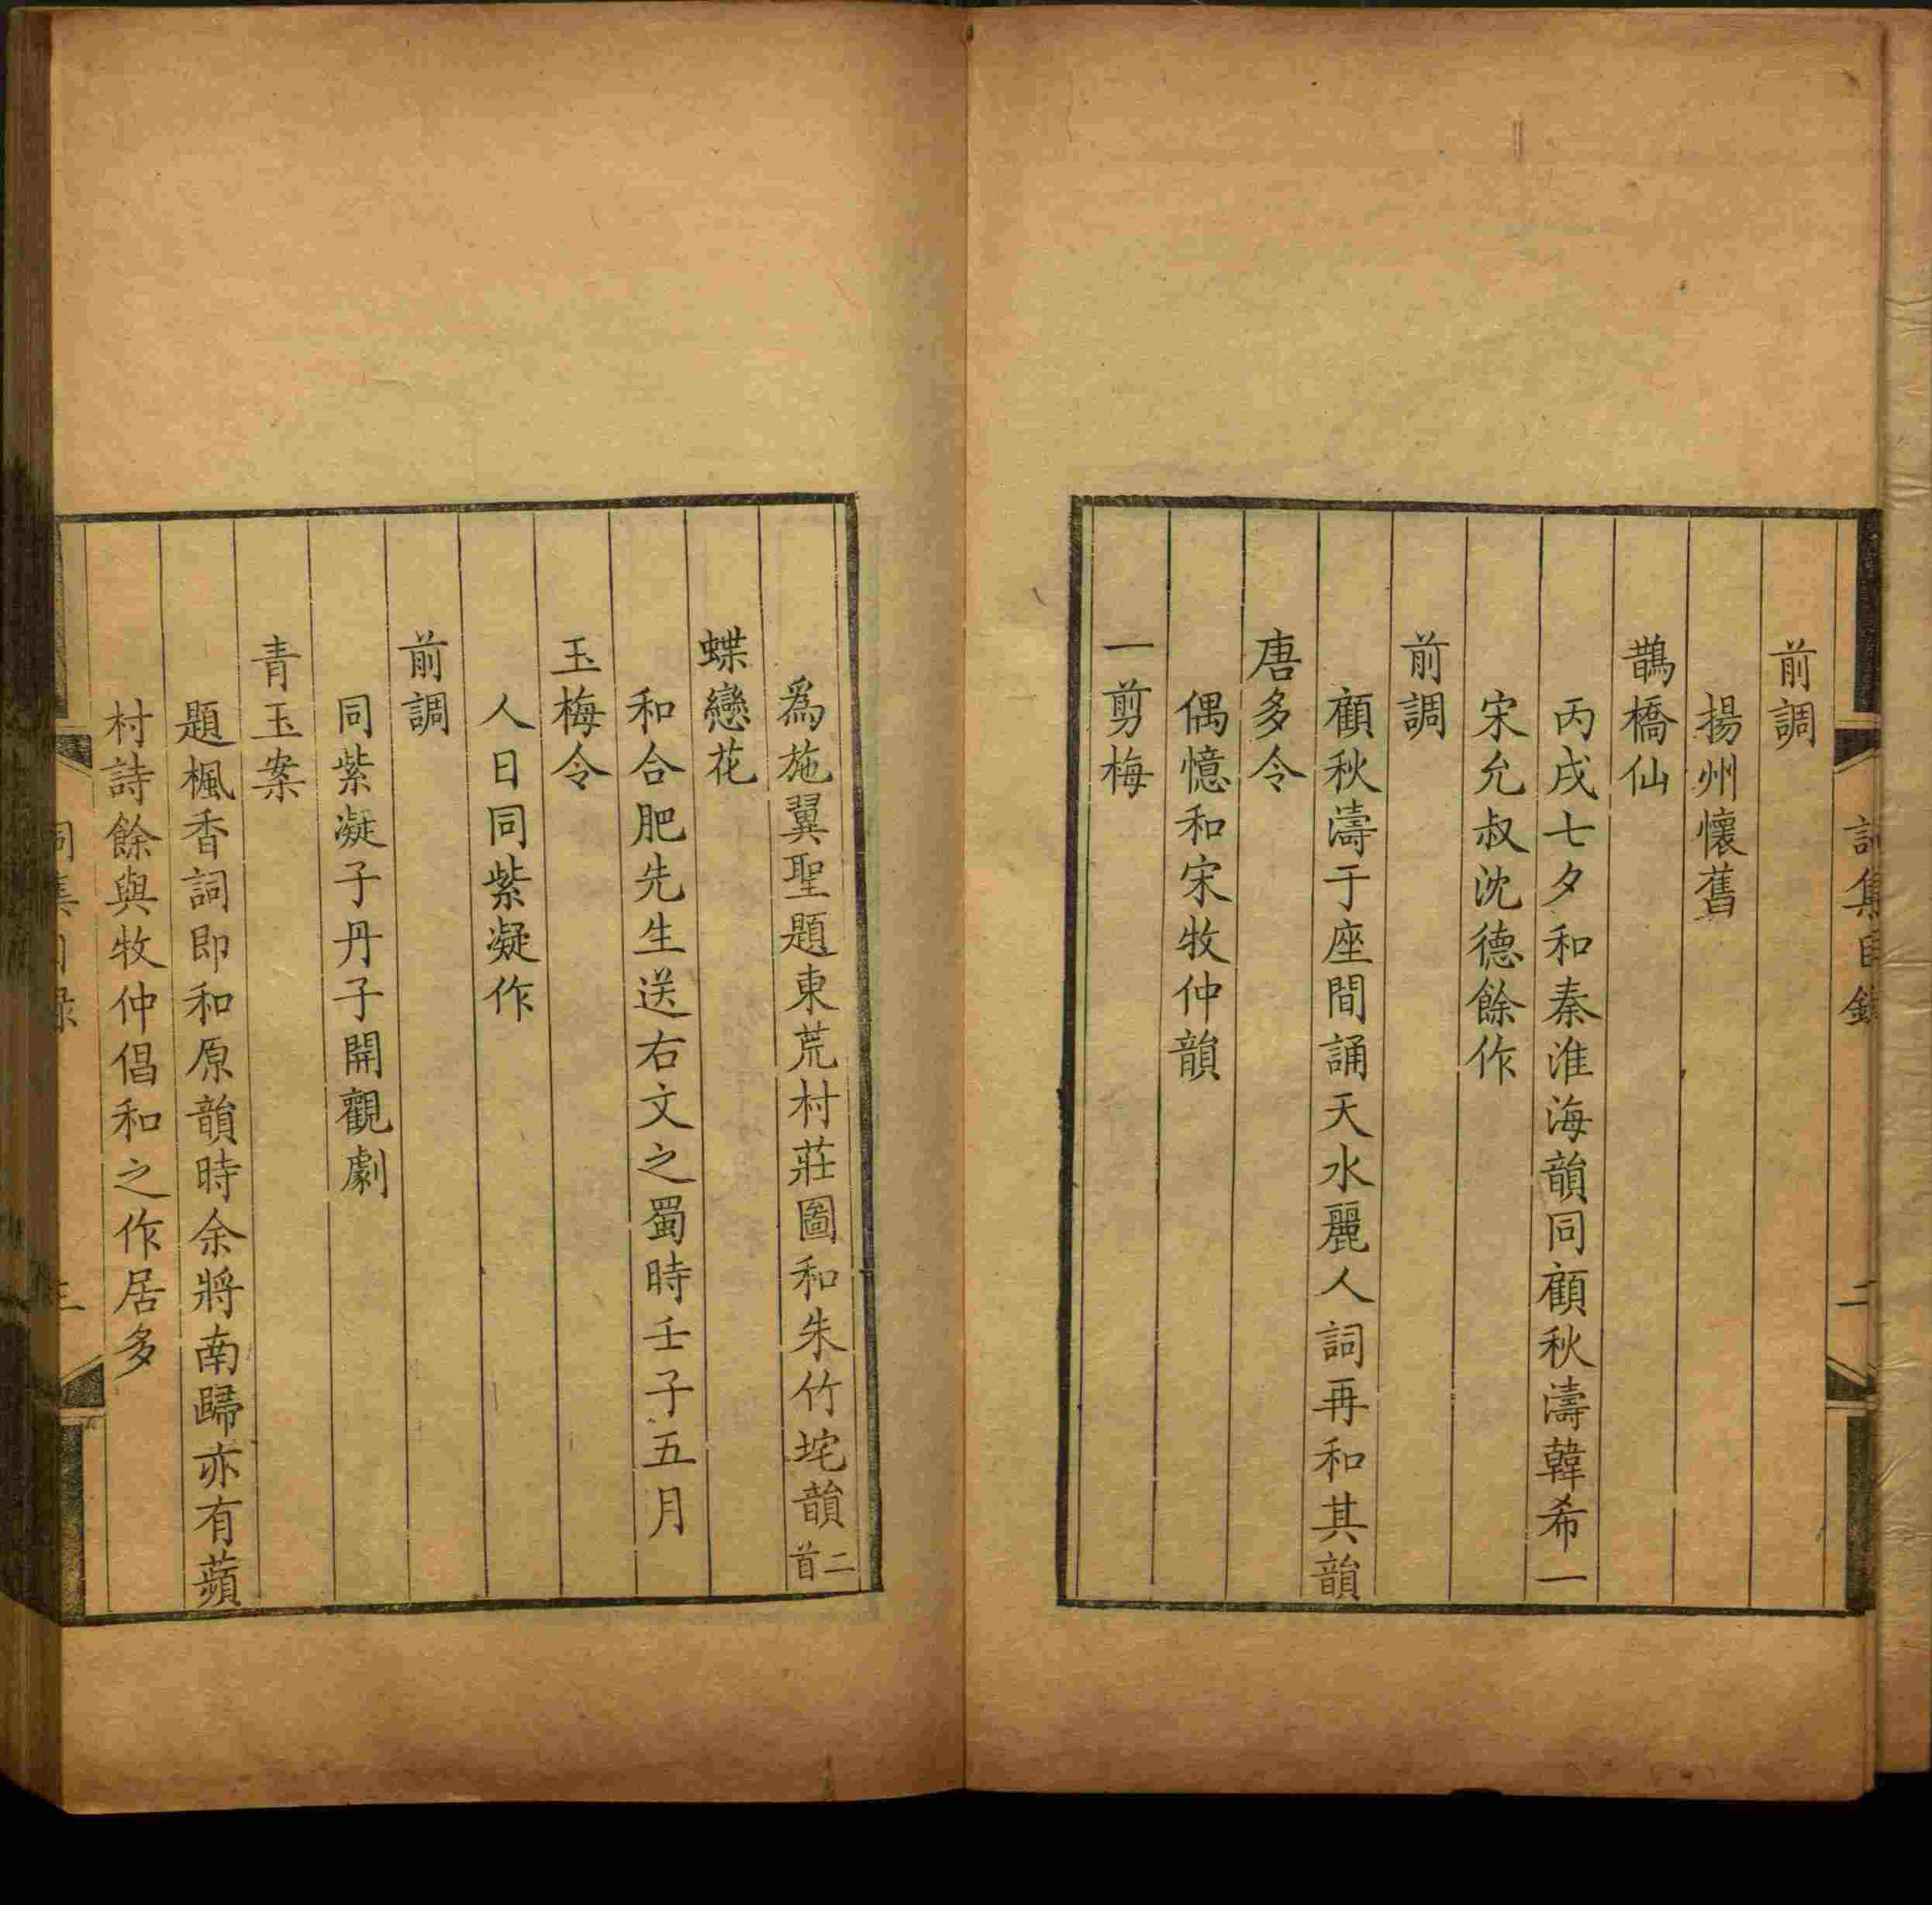 詞集目錄
二
前調
揚州懷舊
鵲橋仙
丙戌七夕和秦淮海韻同顧秋濤韓希一
宋允叔沈德餘作
前調
顧秋濤于座間誦天水麗人詞再和其韻
唐多令
偶憶和宋牧仲韻
一剪梅
為施翼聖題東荒村莊圖和朱竹垞韻二首
蝶戀花
和合肥先生送右文之蜀時壬子五月
玉梅令
人日同紫凝作
前調
同紫凝子丹子開觀劇
青玉案
題楓香詞即和原韻時余將南歸亦有蘋
村詩餘與牧仲倡和之作居多
詞集目錄
三